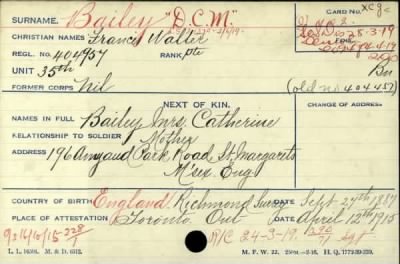 SURNAME. Bailey "D.C.M." CARD NO.
CHRISTIAN NAMES Francis Walter
REGL. NO. 404957 RANK Pte
UNIT 35th
FORMER CORPS Nil (old no. 404457)
NEXT OF KIN. CHANGE OF ADDRESS
NAMES IN FULL Bailey Mrs. Catherine
RELATIONSHIP TO SOLDIER Mother
ADDRESS 196 Amyand Park Road, St. Margarets
M'sex Eng
COUNTRY OF BIRTH England Richmond DATE Sept 27th 1887
PLACE OF ATTESTATION Toronto Ont DATE April 12th 1915
R/C 24-3-19. Sgt
M. F. W. 22.